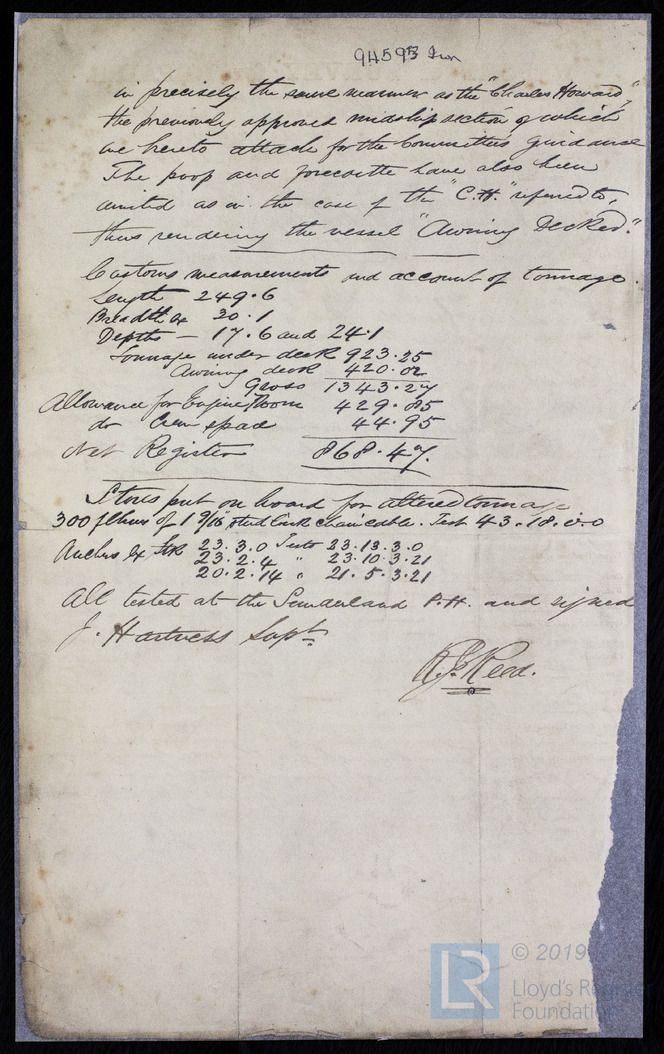 94595 Iron
in precisely the same manner as the "Charles Howard,"
the previously approved midship section of which
we hereto attach for the Committee's guidance
The poop and forecastle have also been
united as in the case of the "C.H." referred to,
thus rendering the vessel "Awning Decked".
Customs measurements and account of tonnage.
Length 249.6
Breadth 30.1
Depths - 17.6 and 24.1
Tonnage under deck 923.25
Awning deck 420.02
Gross 1343.27
Allowance for Engine Room 429.85
do Crew space 44.95
Net Register 868.47.
Stores put on board for altered tonnage
300 fthms of 1 9/16 stud link chain cable. Test 43.18.0.0
Anchors Ex Stk 23.3.0 Tests 23.13.3.0
23.2.4 " 23.10.3.21
20.2.14 " 21.5.3.21
All tested at the Sunderland P.H. and signed
J. Hartness Supt.
R. J. Reed.
© 2019
Lloyd's Register
Foundation
LR